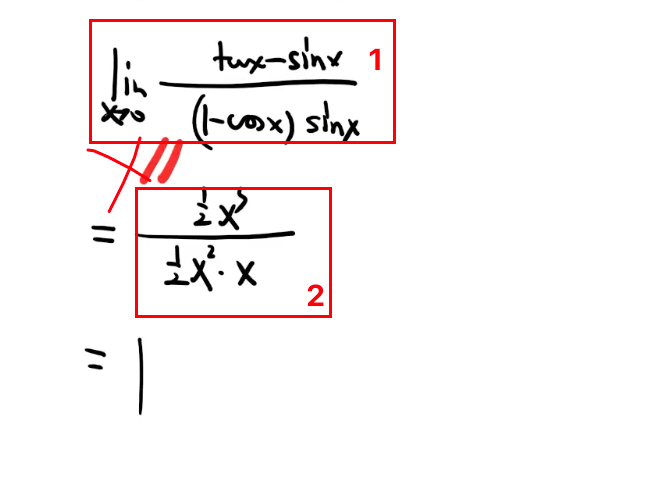 lim x→0 (tanx-sinx)/((1-cosx) sinx) 1
= (1/2 x³)/(1/2 x² · x) 2
= 1